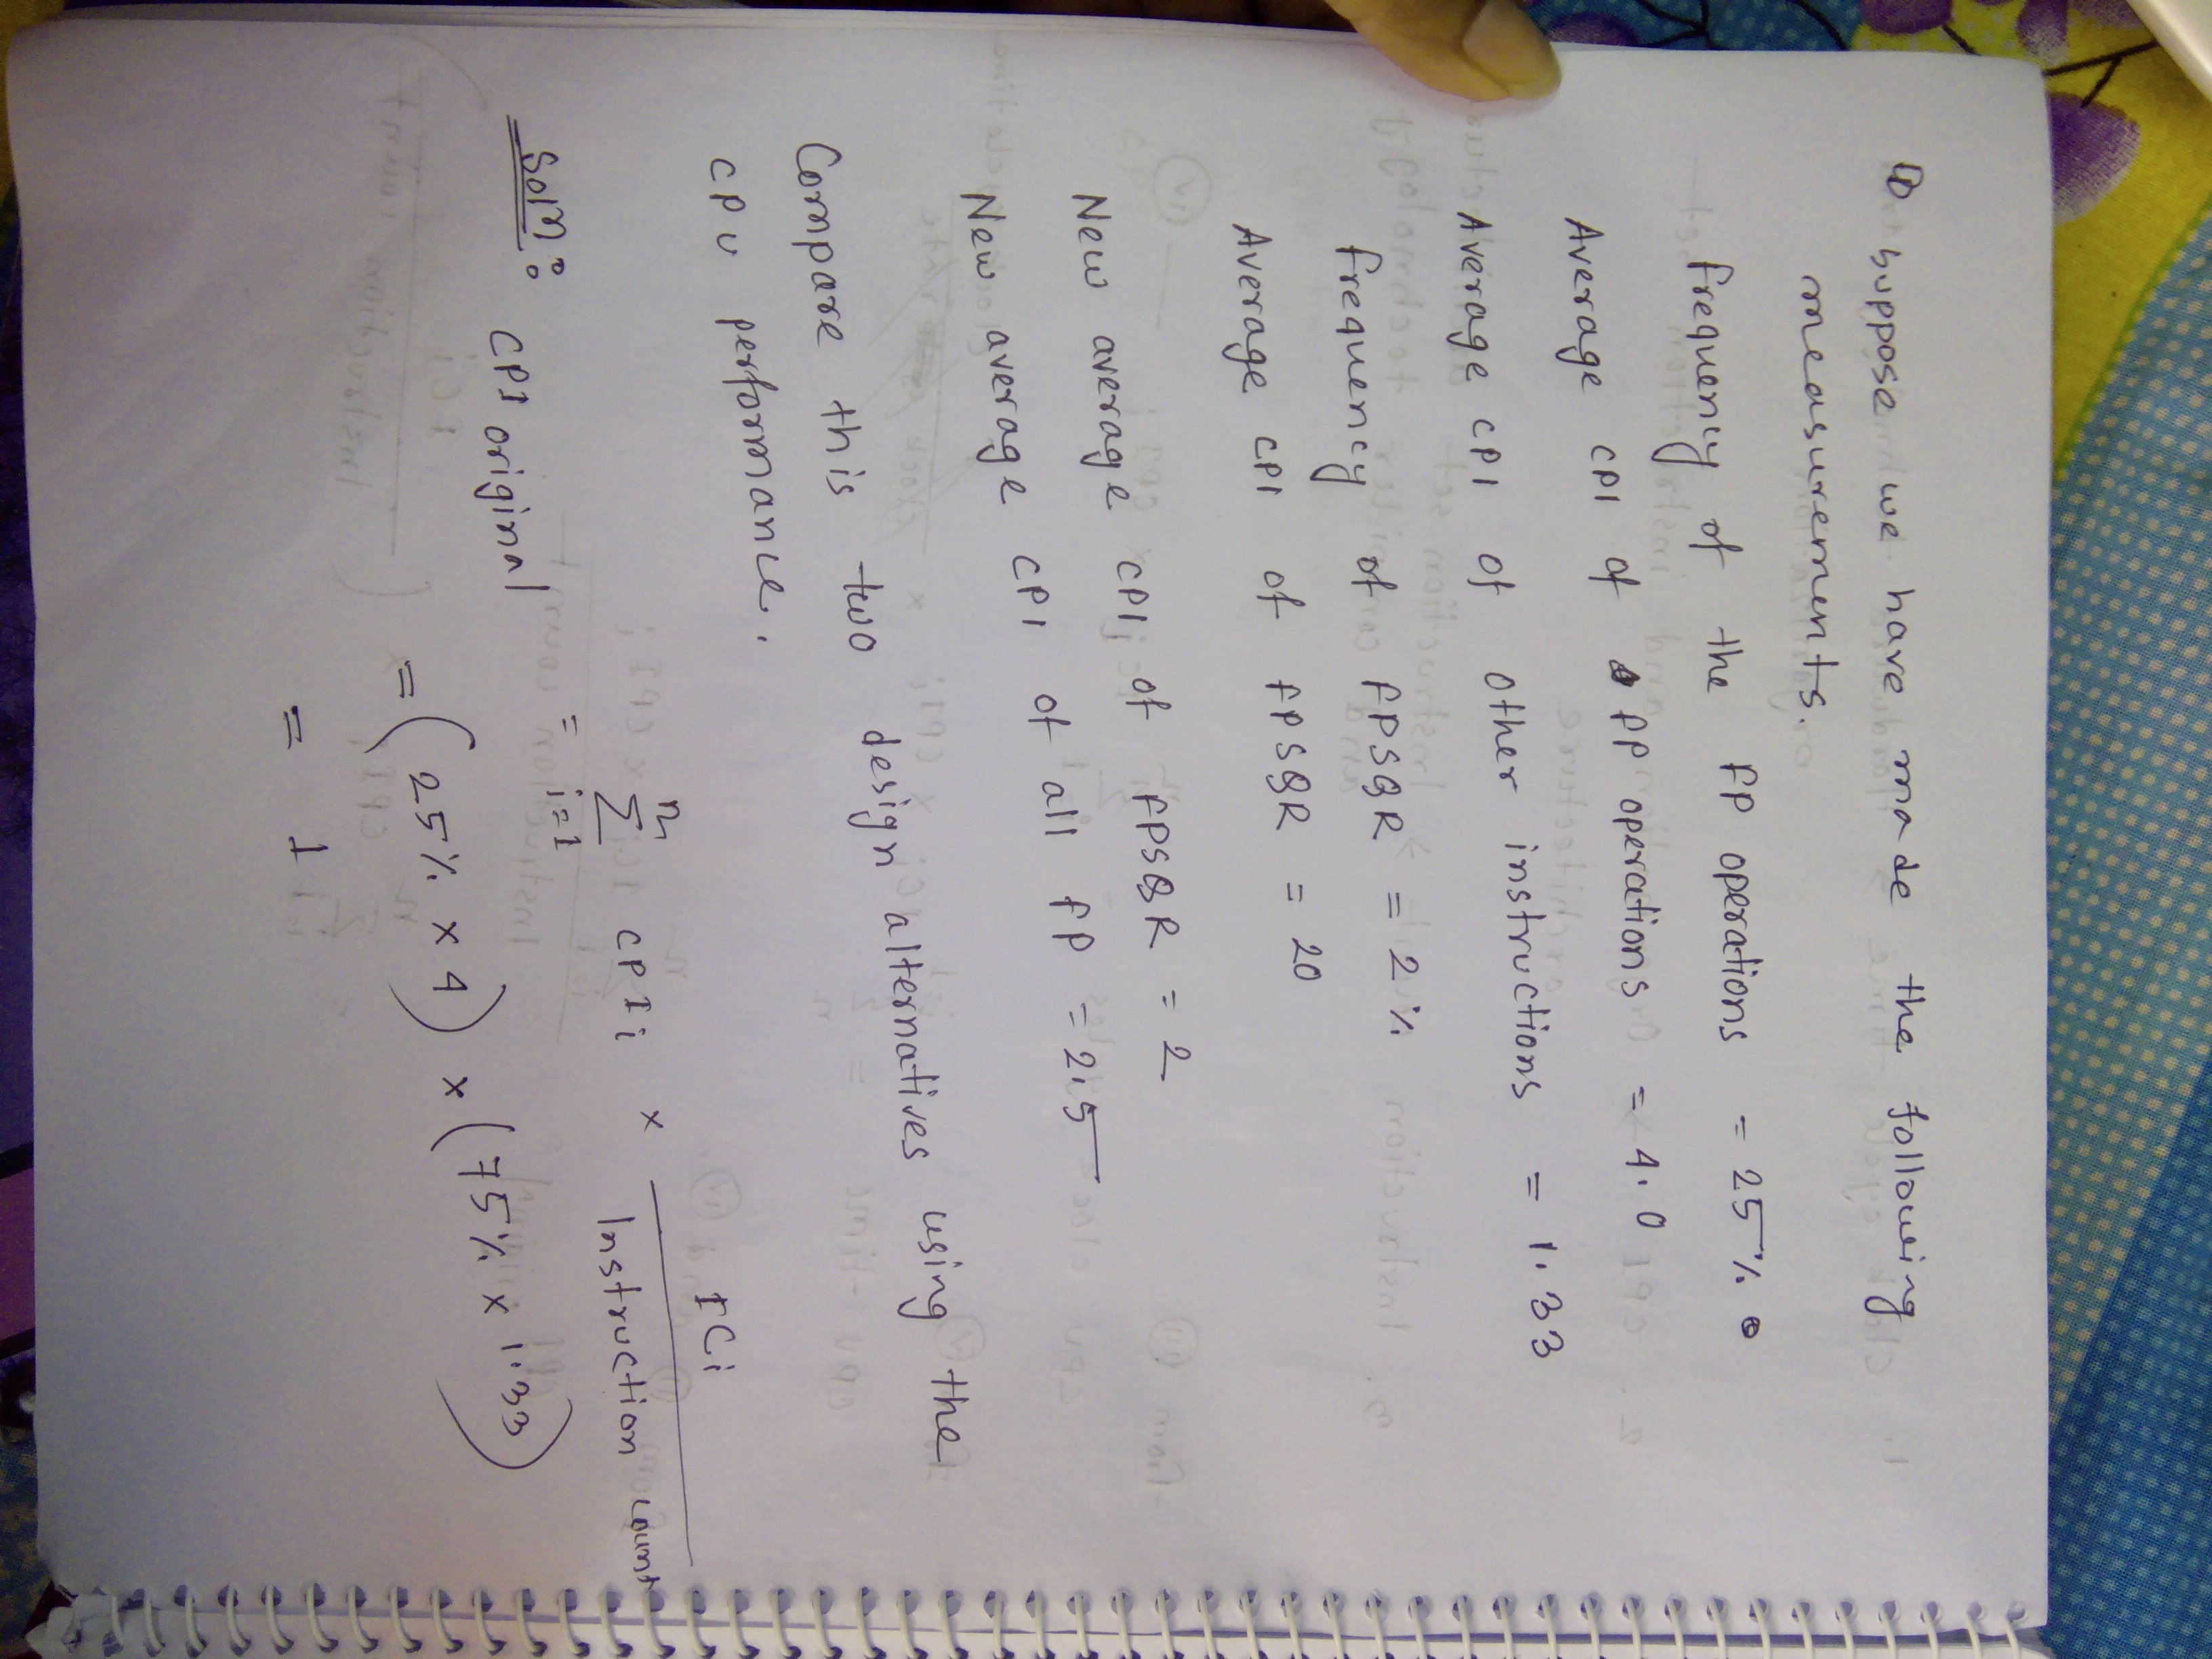 ① Suppose we have made the following
measurements.
Frequency of the FP operations = 25%
Average CPI of FP operations = 4.0
Average CPI of other instructions = 1.33
Frequency of FPSQR = 2%
Average CPI of FPSQR = 20
New average CPI, of FPSQR = 2
New average CPI of all FP = 2.5
Compare this two design alternatives using the
CPU performance.
Soln: CPI original = n Σ i=1 CPIi × ICi / Instruction count
= (25% × 4) × (75% × 1.33)
= 1